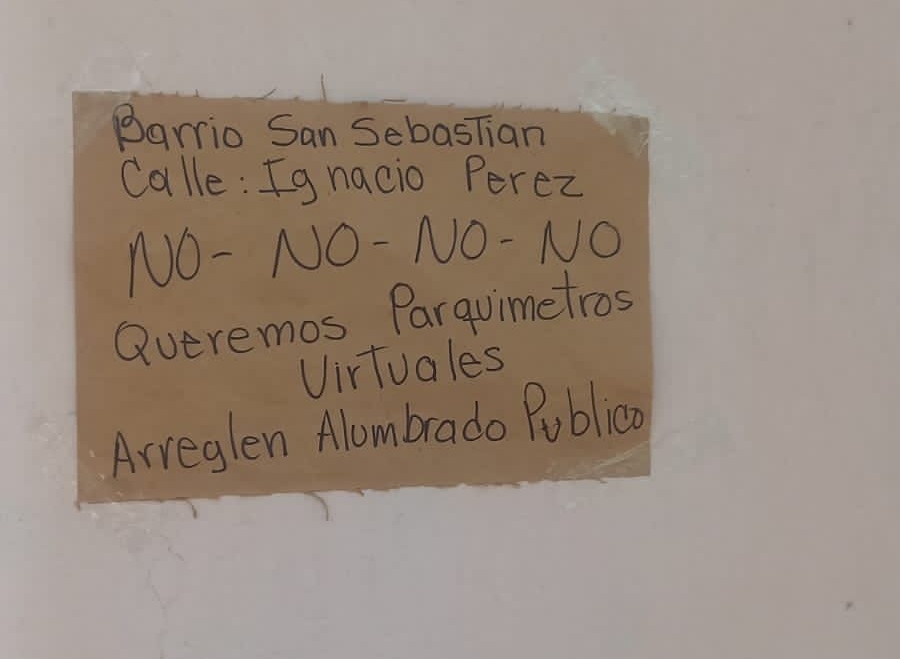 Barrio San Sebastian
Calle: Ignacio Perez
NO- NO- NO- NO
Queremos Parquimetros
Virtuales
Arreglen Alumbrado Publico